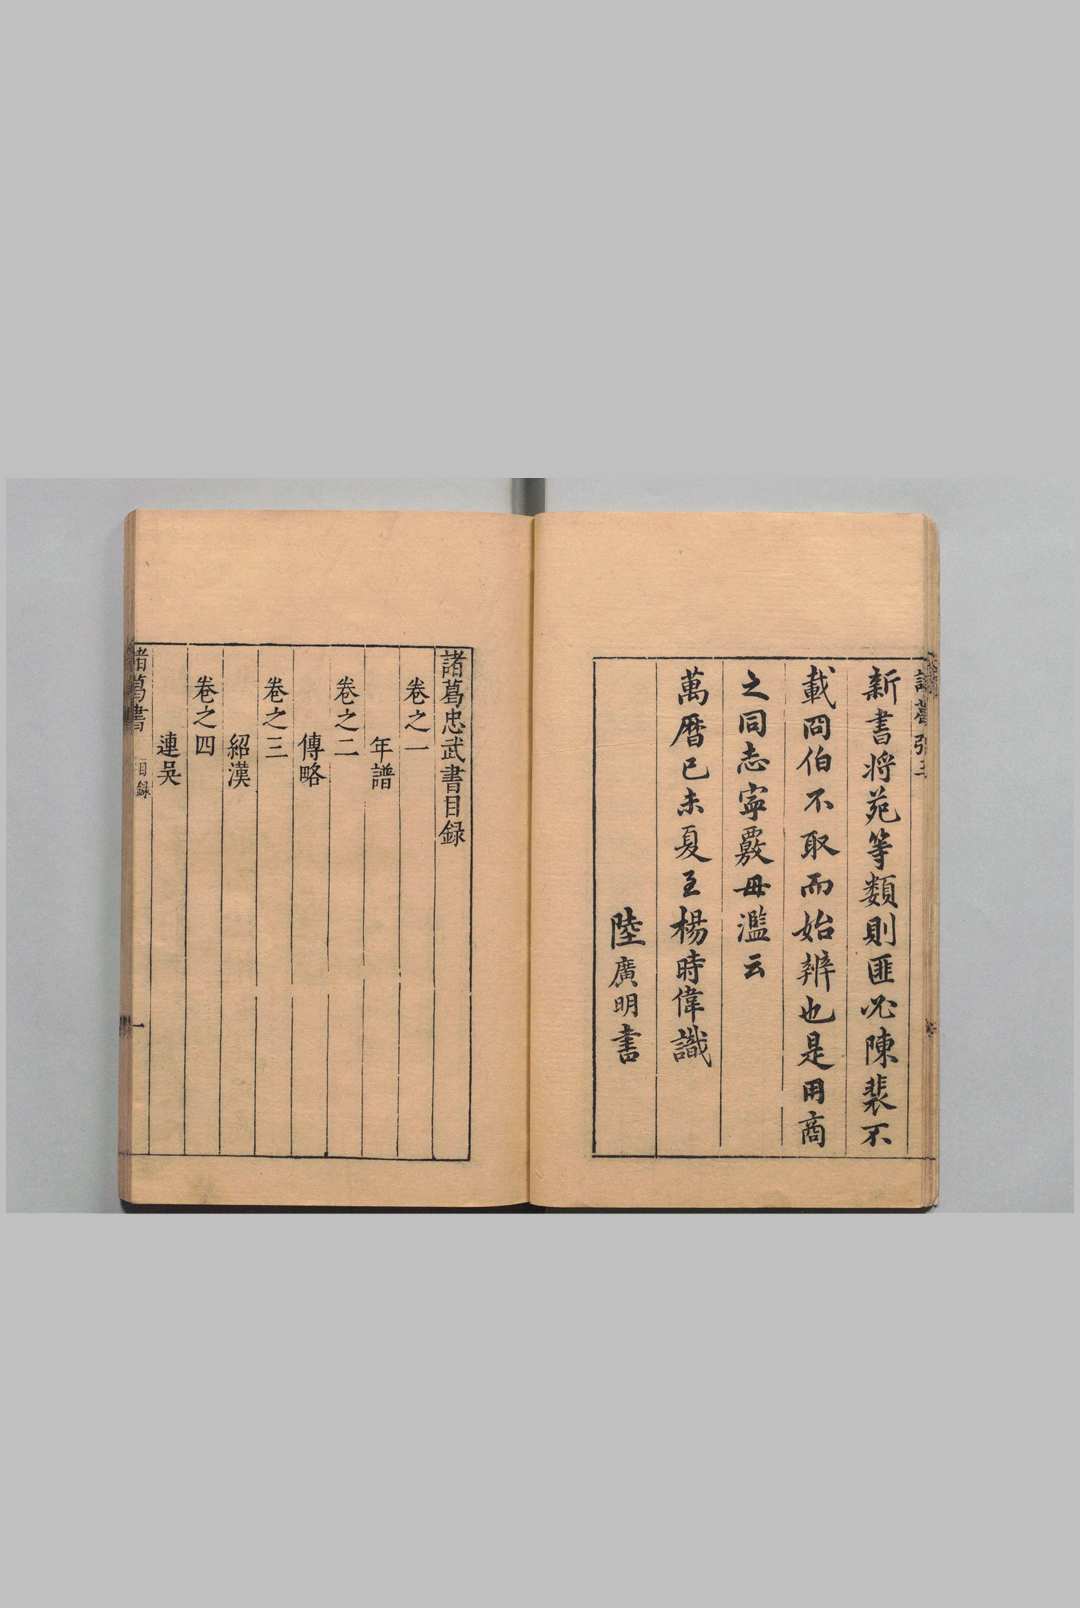 新書將苑等類則匪必陳裴不
載冏伯不取而始辨也是用商
之同志寜覈毋濫云
萬曆己未夏至楊時偉識
陸廣明書
諸葛忠武書目錄
卷之一
年譜
卷之二
傳略
卷之三
紹漢
卷之四
連吳
諸葛書 目録 一